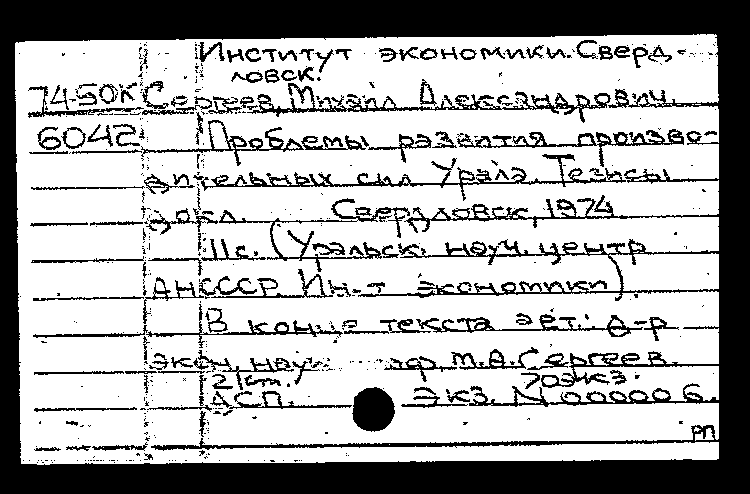 Институт экономики. Сверд-
ловск.
74-50К Сергеев, Михаил Александрович.
6042 Проблемы развития произво-
дительных сил Урала. Тезисы
докл. Свердловск, 1974
11 с. (Уральск. науч. центр
АН СССР. Ин-т экономики).
В конце текста авт.: д-р
экон. наук М.А. Сергеев.
21 cm. 70 экз.
ДСП. Экз. N 000006.
РП